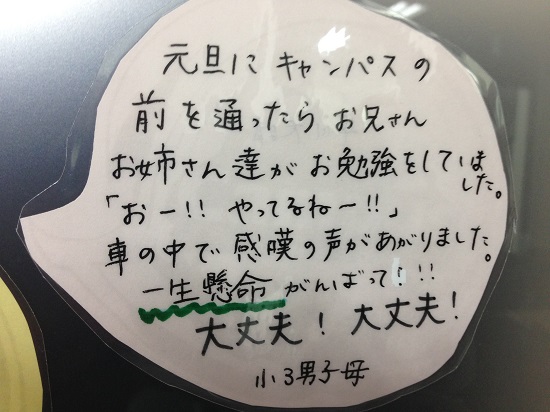 元旦に キャンパスの
前を通ったら お兄さん
お姉さん達が お勉強をしていました。
「おー!! やってるねー!!」
車の中で感嘆の声があがりました。
一生懸命 がんばって!!!
大丈夫! 大丈夫!
小3男子母